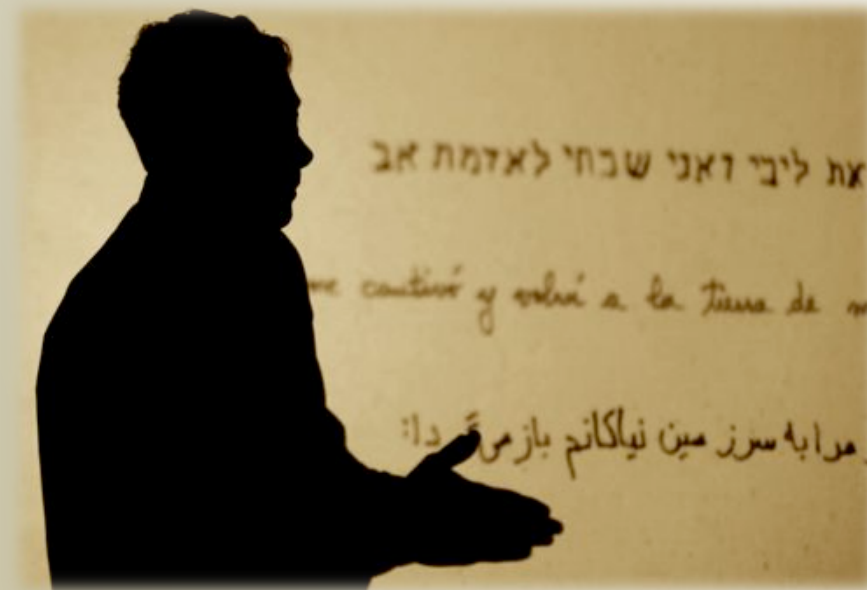 את ליבי ואני שבתי לאדמת אב
me cautivó y volví a la tierra de m
مرا به سرزمین نیاکانم بازمی‌گ دا: